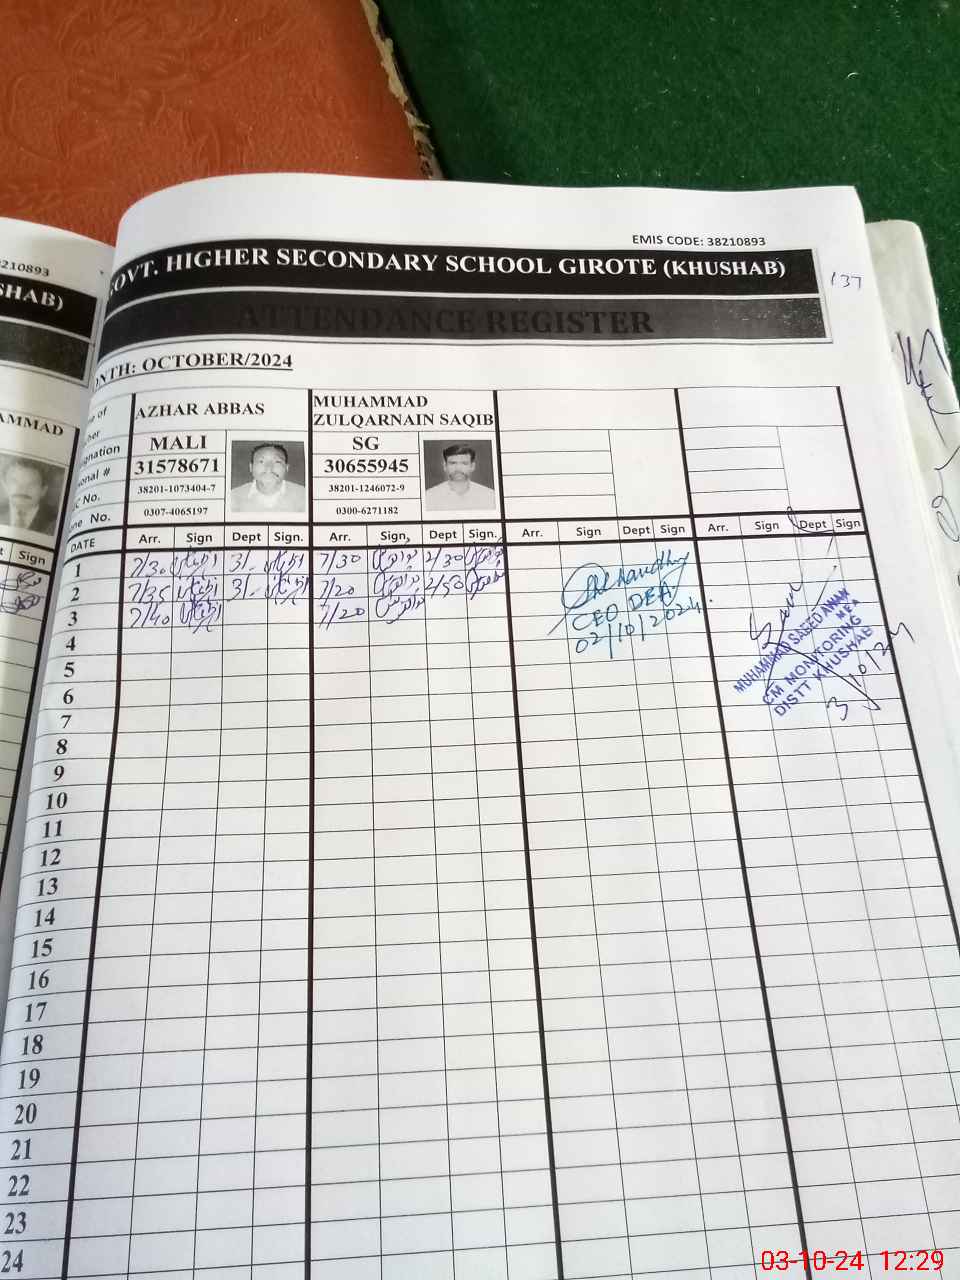 EMIS CODE: 38210893
GOVT. HIGHER SECONDARY SCHOOL GIROTE (KHUSHAB)
137
ATTENDANCE REGISTER
ONTH: OCTOBER/2024
210893
SHAB)
AMMAD
Sign
me of
cher
AZHAR ABBAS
MUHAMMAD
ZULQARNAIN SAQIB
gnation
MALI
SG
onal #
31578671
30655945
C No.
38201-1073404-7
38201-1246072-9
one No.
0307-4065197
0300-6271182
DATE Arr. Sign Dept Sign. Arr. Sign, Dept Sign. Arr. Sign Dept Sign Arr. Sign Dept Sign
1 7/30 3/- 7/30 2/30
2 7/35 3/- 7/20 2/50
3 7/40 7/20
4
5
6
7
8
9
10
11
12
13
14
15
16
17
18
19
20
21
22
23
24
CEO DEA
02/10/2024.
MUHAMMAD SAEED AWAN
MEA
CM MONITORING
DISTT KHUSHAB
3/10/24
03-10-24 12:29